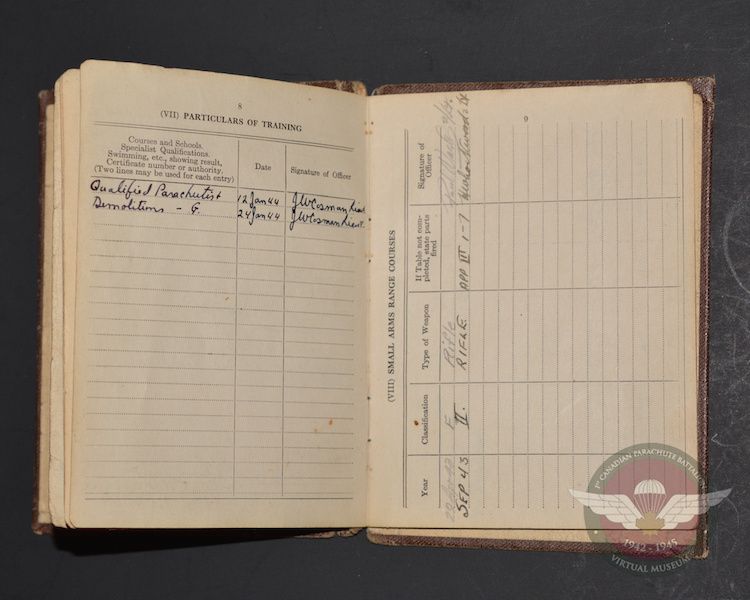 8
(VII) PARTICULARS OF TRAINING
Courses and Schools.
Specialist Qualifications.
Swimming, etc., showing result,
Certificate number or authority.
(Two lines may be used for each entry)
Date
Signature of Officer
Qualified Parachutist 12 Jan 44 JWCosman Lieut
Demolitions - G. 24 Jan 44 JWCosman Lieut.
9
(VIII) SMALL ARMS RANGE COURSES
Year
Classification
Type of Weapon
If Table not com-
pleted, state parts
fired
Signature of
Officer
Rifle
SEP 43 II. RIFLE APP III 1-7
1ST CANADIAN PARACHUTE BATTALION
1942 - 1945
VIRTUAL MUSEUM